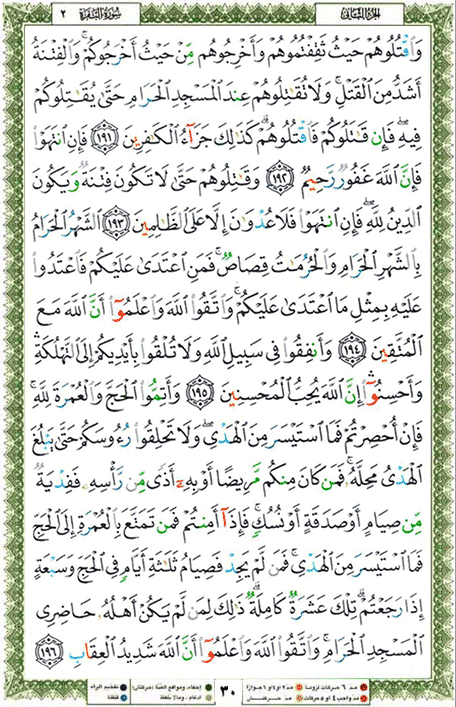 سورة البقرة ٢
الجزء الثاني
وَٱقۡتُلُوهُمۡ حَيۡثُ ثَقِفۡتُمُوهُمۡ وَأَخۡرِجُوهُم مِّنۡ حَيۡثُ أَخۡرَجُوكُمۡۚ وَٱلۡفِتۡنَةُ
أَشَدُّ مِنَ ٱلۡقَتۡلِۚ وَلَا تُقَٰتِلُوهُمۡ عِندَ ٱلۡمَسۡجِدِ ٱلۡحَرَامِ حَتَّىٰ يُقَٰتِلُوكُمۡ
فِيهِۖ فَإِن قَٰتَلُوكُمۡ فَٱقۡتُلُوهُمۡۗ كَذَٰلِكَ جَزَآءُ ٱلۡكَٰفِرِينَ ١٩١ فَإِنِ ٱنتَهَوۡاْ
فَإِنَّ ٱللَّهَ غَفُورٞ رَّحِيمٞ ١٩٢ وَقَٰتِلُوهُمۡ حَتَّىٰ لَا تَكُونَ فِتۡنَةٞ وَيَكُونَ
ٱلدِّينُ لِلَّهِۖ فَإِنِ ٱنتَهَوۡاْ فَلَا عُدۡوَٰنَ إِلَّا عَلَى ٱلظَّٰلِمِينَ ١٩٣ ٱلشَّهۡرُ ٱلۡحَرَامُ
بِٱلشَّهۡرِ ٱلۡحَرَامِ وَٱلۡحُرُمَٰتُ قِصَاصٞۚ فَمَنِ ٱعۡتَدَىٰ عَلَيۡكُمۡ فَٱعۡتَدُواْ
عَلَيۡهِ بِمِثۡلِ مَا ٱعۡتَدَىٰ عَلَيۡكُمۡۚ وَٱتَّقُواْ ٱللَّهَ وَٱعۡلَمُوٓاْ أَنَّ ٱللَّهَ مَعَ
ٱلۡمُتَّقِينَ ١٩٤ وَأَنفِقُواْ فِي سَبِيلِ ٱللَّهِ وَلَا تُلۡقُواْ بِأَيۡدِيكُمۡ إِلَى ٱلتَّهۡلُكَةِ
وَأَحۡسِنُوٓاْۚ إِنَّ ٱللَّهَ يُحِبُّ ٱلۡمُحۡسِنِينَ ١٩٥ وَأَتِمُّواْ ٱلۡحَجَّ وَٱلۡعُمۡرَةَ لِلَّهِۚ
فَإِنۡ أُحۡصِرۡتُمۡ فَمَا ٱسۡتَيۡسَرَ مِنَ ٱلۡهَدۡيِۖ وَلَا تَحۡلِقُواْ رُءُوسَكُمۡ حَتَّىٰ يَبۡلُغَ
ٱلۡهَدۡيُ مَحِلَّهُۥۚ فَمَن كَانَ مِنكُم مَّرِيضًا أَوۡ بِهِۦٓ أَذٗى مِّن رَّأۡسِهِۦ فَفِدۡيَةٞ
مِّن صِيَامٍ أَوۡ صَدَقَةٍ أَوۡ نُسُكٖۚ فَإِذَآ أَمِنتُمۡ فَمَن تَمَتَّعَ بِٱلۡعُمۡرَةِ إِلَى ٱلۡحَجِّ
فَمَا ٱسۡتَيۡسَرَ مِنَ ٱلۡهَدۡيِۚ فَمَن لَّمۡ يَجِدۡ فَصِيَامُ ثَلَٰثَةِ أَيَّامٖ فِي ٱلۡحَجِّ وَسَبۡعَةٍ
إِذَا رَجَعۡتُمۡۗ تِلۡكَ عَشَرَةٞ كَامِلَةٞۗ ذَٰلِكَ لِمَن لَّمۡ يَكُنۡ أَهۡلُهُۥ حَاضِرِي
ٱلۡمَسۡجِدِ ٱلۡحَرَامِۚ وَٱتَّقُواْ ٱللَّهَ وَٱعۡلَمُوٓاْ أَنَّ ٱللَّهَ شَدِيدُ ٱلۡعِقَابِ ١٩٦
مد ٦ حركات لزوما مد ٢ أو ٤ أو ٦ جوازا
مد واجب ٤ أو ٥ حركات مد حركتان
٣٠
إخفاء، ومواقع الغنة (حركتان) تفخيم الراء
إدغام، وما لا يلفظ قلقلة